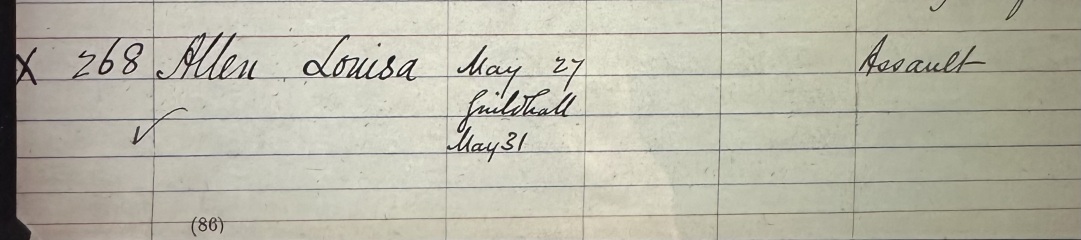 X 268 Allen Louisa May 27 Assault
Guildhall
May 31
(86)